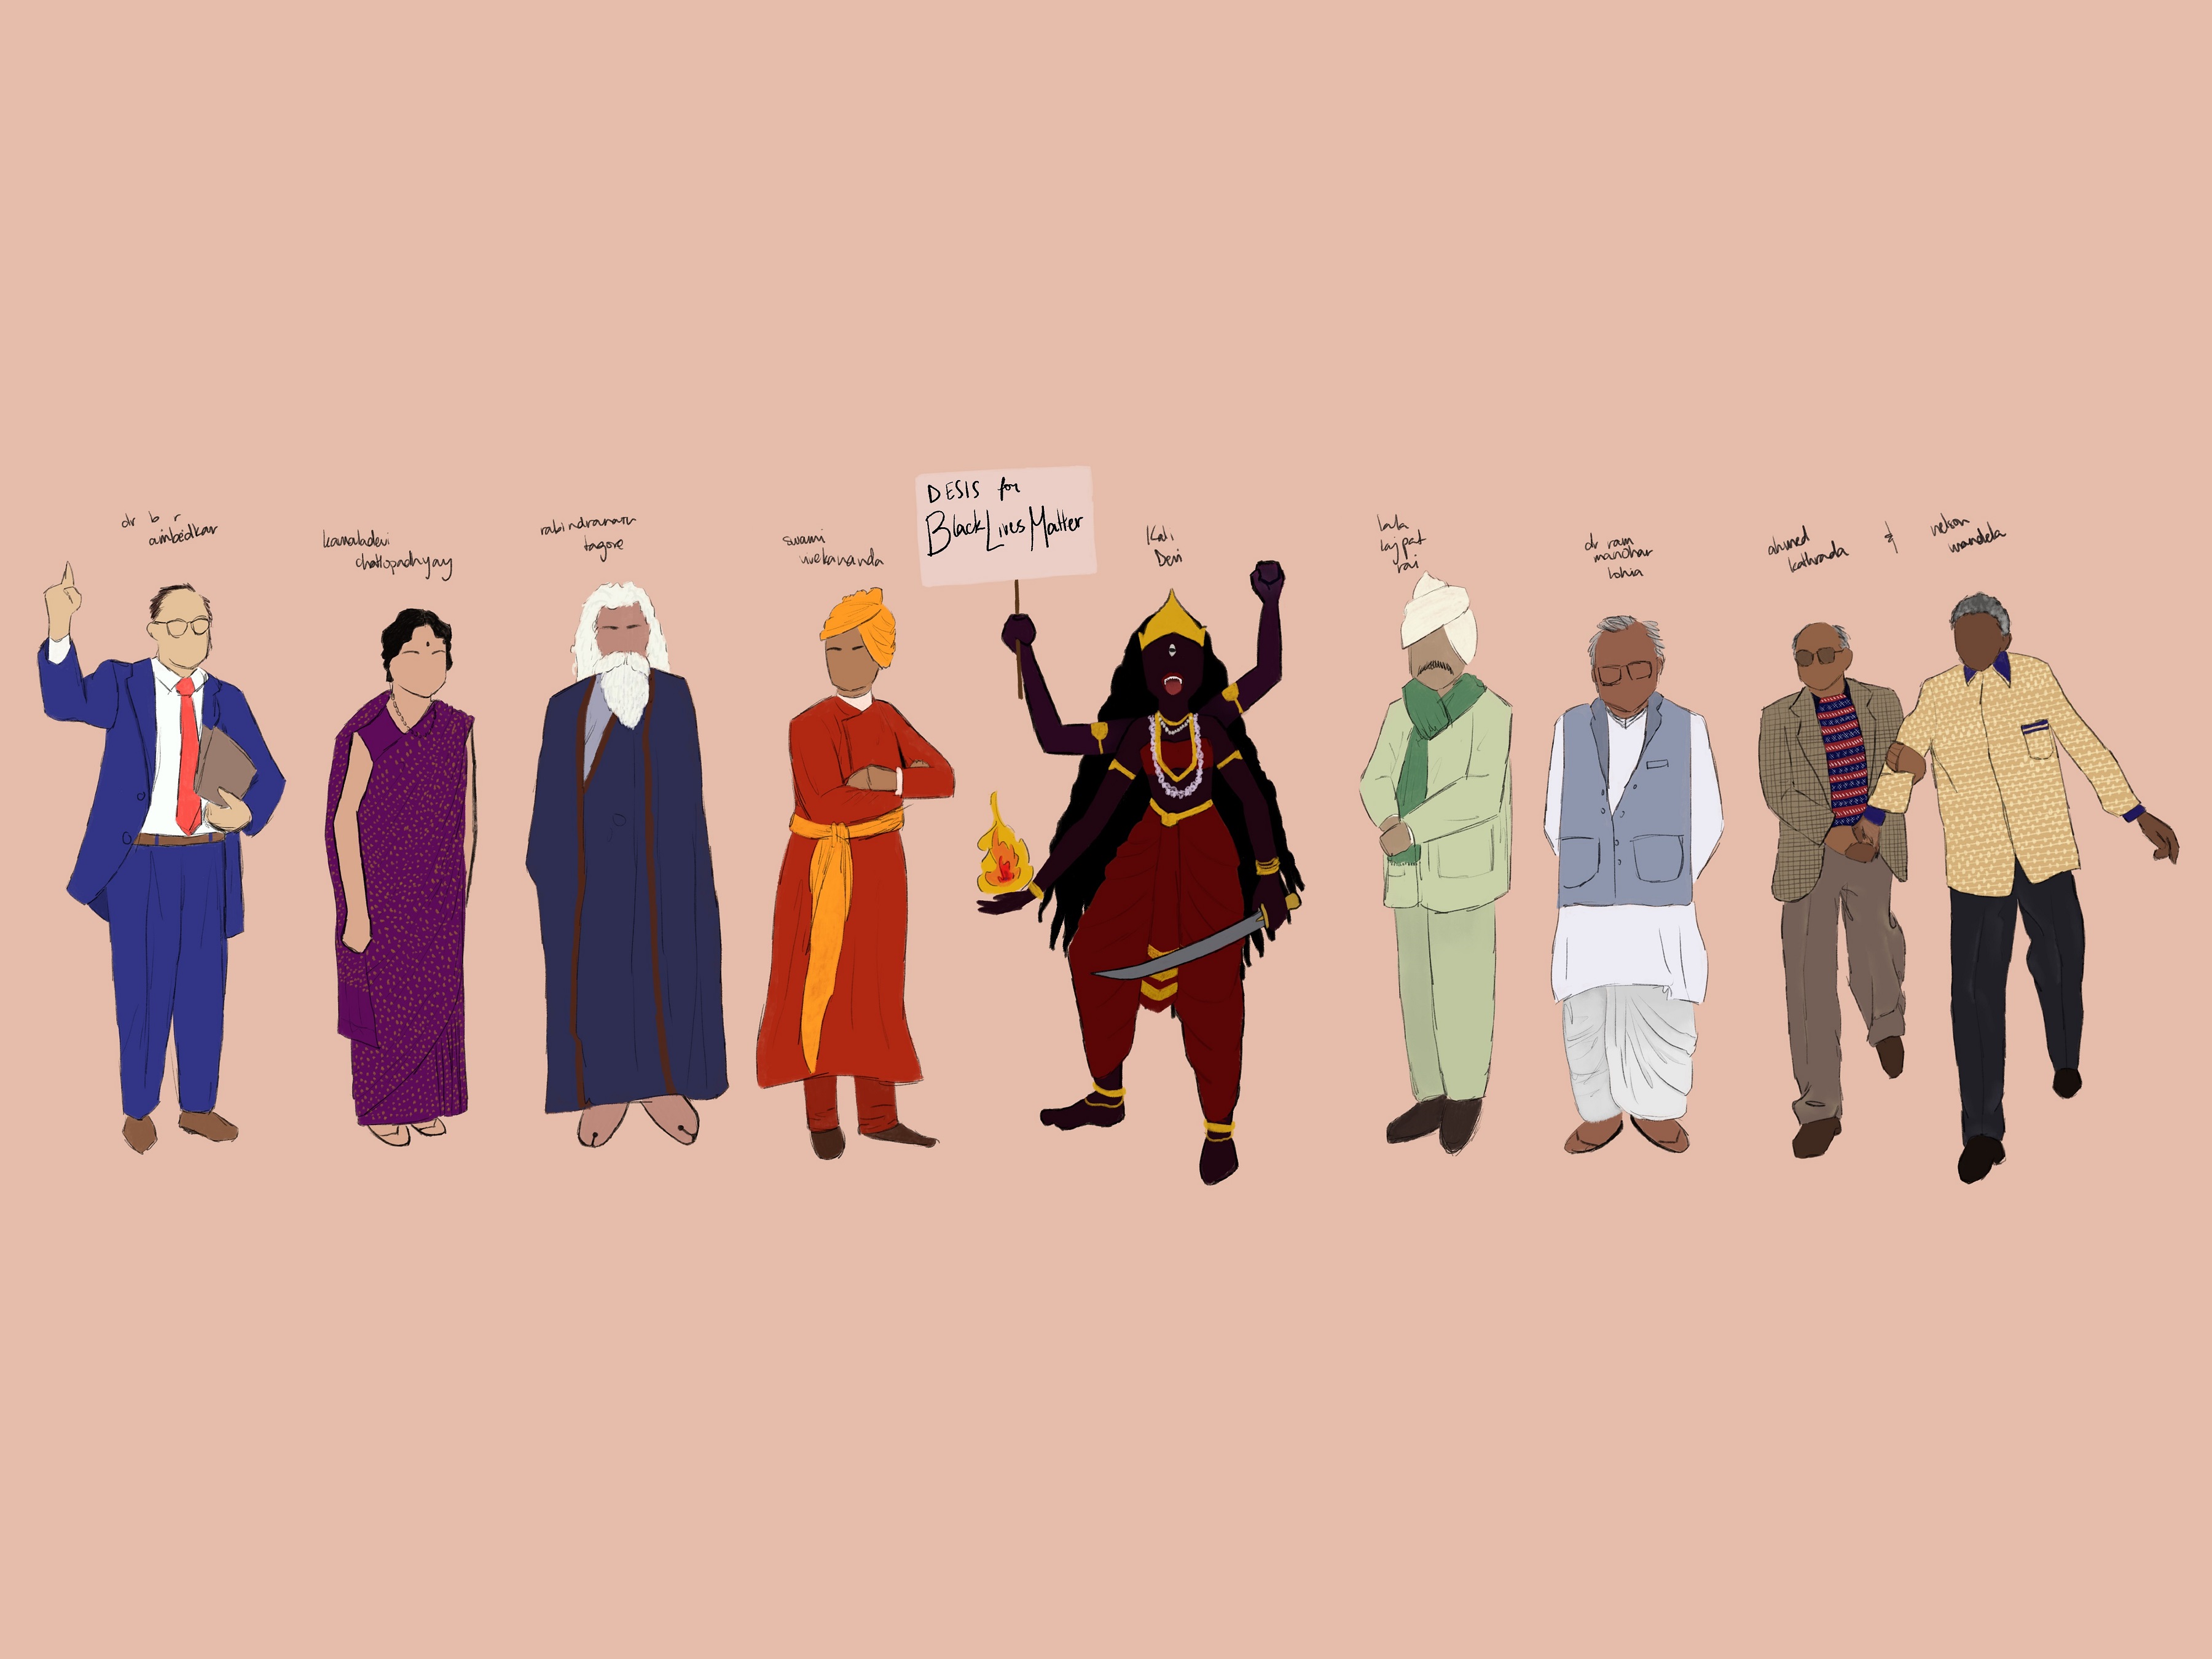 dr b r
ambedkar
kamaladevi
chattopadhyay
rabindranath
tagore
swami
vivekananda
DESIS for
Black Lives Matter
Kali
Devi
lala
lajpat
rai
dr ram
manohar
lohia
ahmed
kathrada
&
nelson
mandela